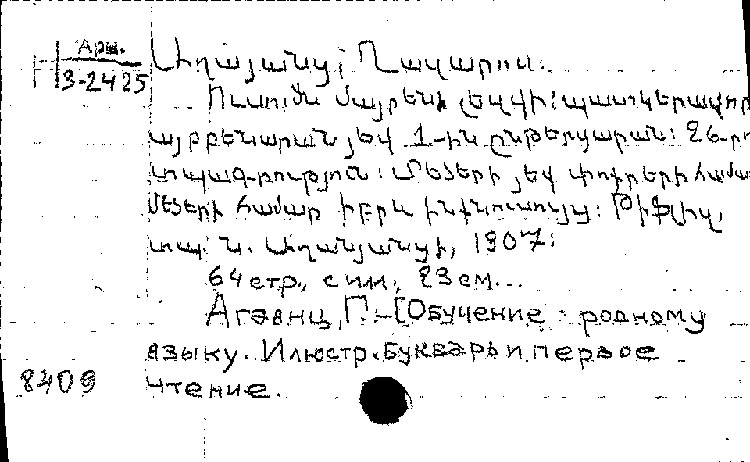 Арм.
3-2425
Աղայանց, Ղազարոս.
Ուսումն մայրենի լեզվի: պատկերավոր
այբբենարան յեվ 1-ին ընթերցարան: 26-րդ
տպագրություն: Մեծերի յեվ փոքրերի համար
մեծերի համար իբրև ինքնուսույց: Թիֆլիզ,
տպ. Ն. Աղանյանցի, 1907:
64 стр., с илл., 23 см.
Агаянц, Г. [Обучение родному
языку. Илюстр. букварь и первое
8409 чтение.